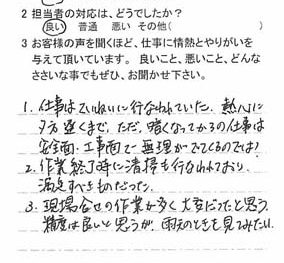 2 担当者の対応は、どうでしたか?
良い 普通 悪い その他( )
3 お客様の声を聞くほど、仕事に情熱とやりがいを
与えて頂いています。良いこと、悪いこと、どんな
ささいな事でもぜひ、お聞かせ下さい。
1. 仕事はていねいに行なわれていた。熱心に
夕方遅くまで。ただ、暗くなってからの仕事は
安全面・工事面で無理がでてくるのでは?
2. 作業終了時に清掃も行なわれており
満足すべきものだった。
3. 現場合せの作業が多く大変だったと思う
精度は良いと思うが、雨天のときを見てみたい.